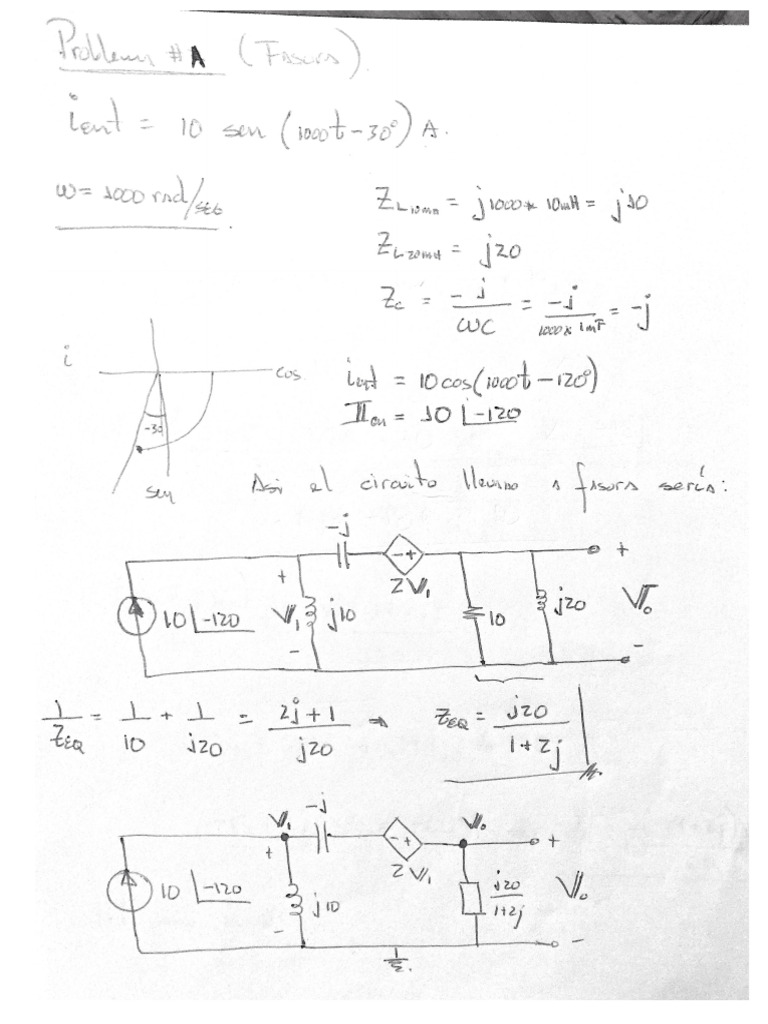 Problema #A (Fasores).
i_ent = 10 sen (1000t-30°) A.
ω = 1000 rad/seg.
Z_L10mH = j1000 * 10mH = j10
Z_L20mH = j20
Z_C = -j/ωC = -j/1000x1mF = -j
i
cos
-30
sen
i_ent = 10cos(1000t-120°)
I_en = 10 ∟-120
Asi el circuito llevado a fasores sería:
-j
- +
+
2V₁
+
10 ∟-120
V₁
j10
10
j20
V₀
-
-
1/Z_EQ = 1/10 + 1/j20 = 2j+1/j20 ⇒ Z_EQ = j20/1+2j
V₁
-j
- +
V₀
+
+
2V₁
10 ∟-120
j10
j20/1+2j
V₀
-
-